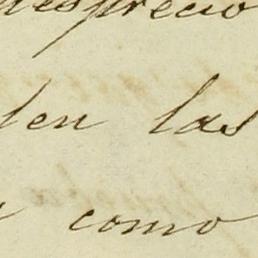 desprecio
den las
como